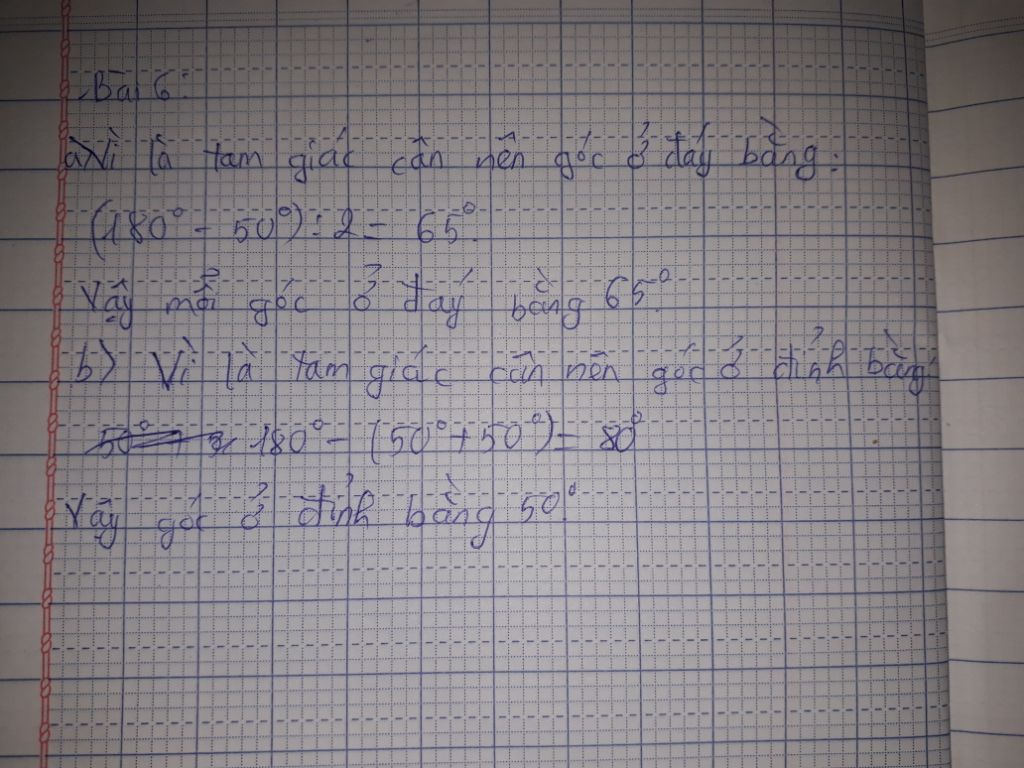 Bài 6:
a) Vì là tam giác cân nên góc ở đáy bằng:
(180° - 50°) : 2 = 65°.
Vậy mỗi góc ở đáy bằng 65°.
b) Vì là tam giác cân nên góc ở đỉnh bằng:
180° - (50° + 50°) = 80°
Vậy góc ở đỉnh bằng 50°.